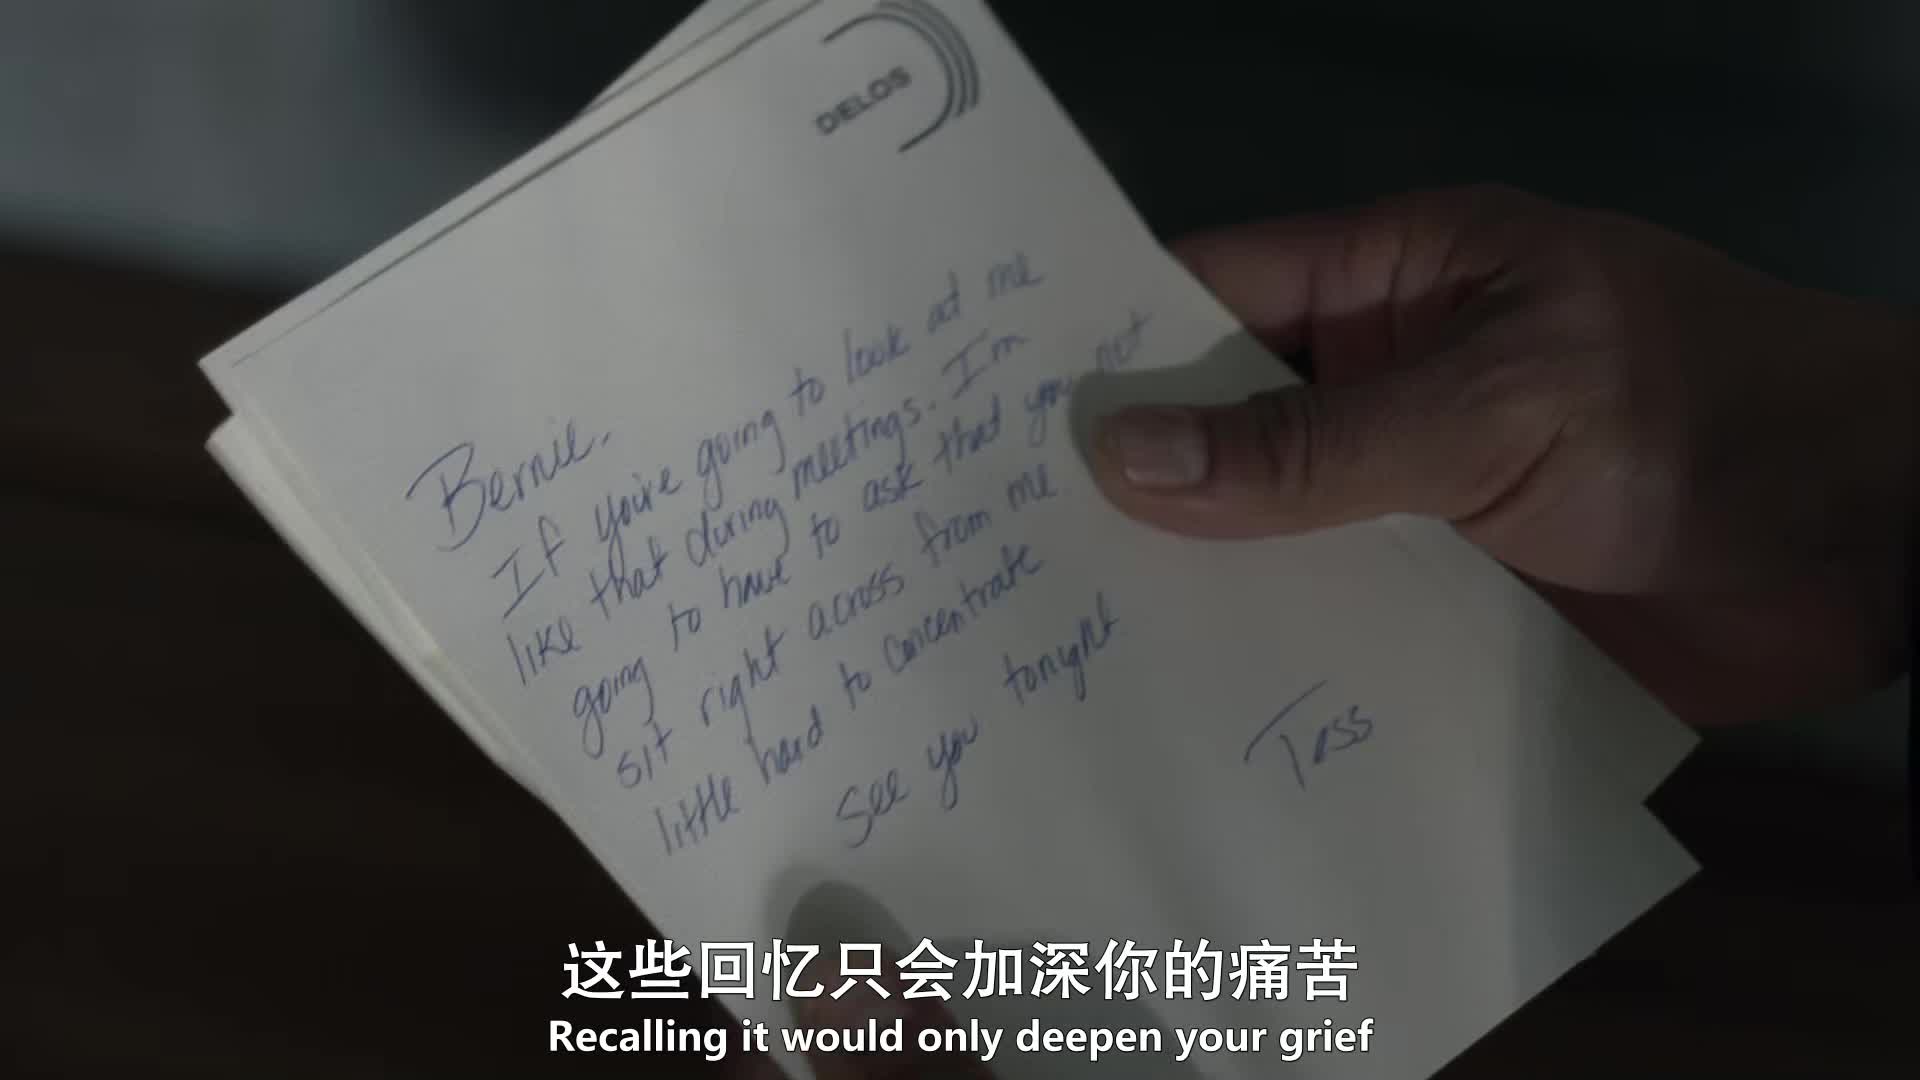 DELOS
Bernie,
If you're going to look at me
like that during meetings. I'm
going to have to ask that you not
sit right across from me
little hard to concentrate
see you tonight
Tess
这些回忆只会加深你的痛苦
Recalling it would only deepen your grief